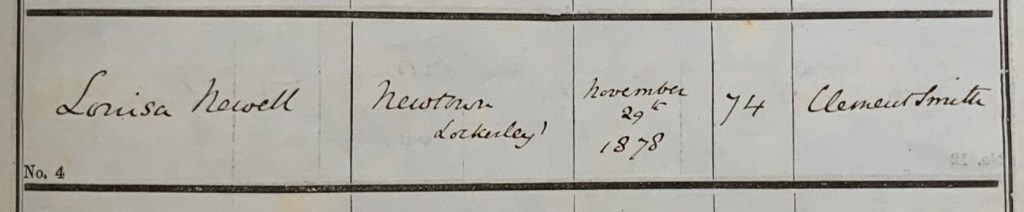 Louisa Newell
Newtown
Lockerley
November
29th
1878
74
Clement Smith
No. 4